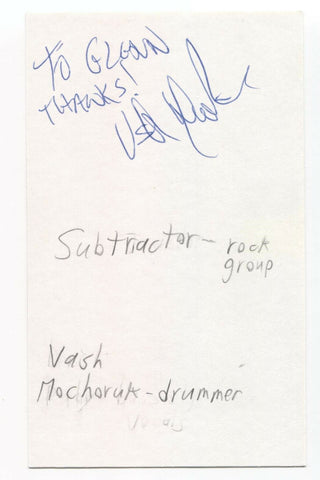 TO GLENN
THANKS!
Subtractor - rock
group
Vash
Mochoruk - drummer